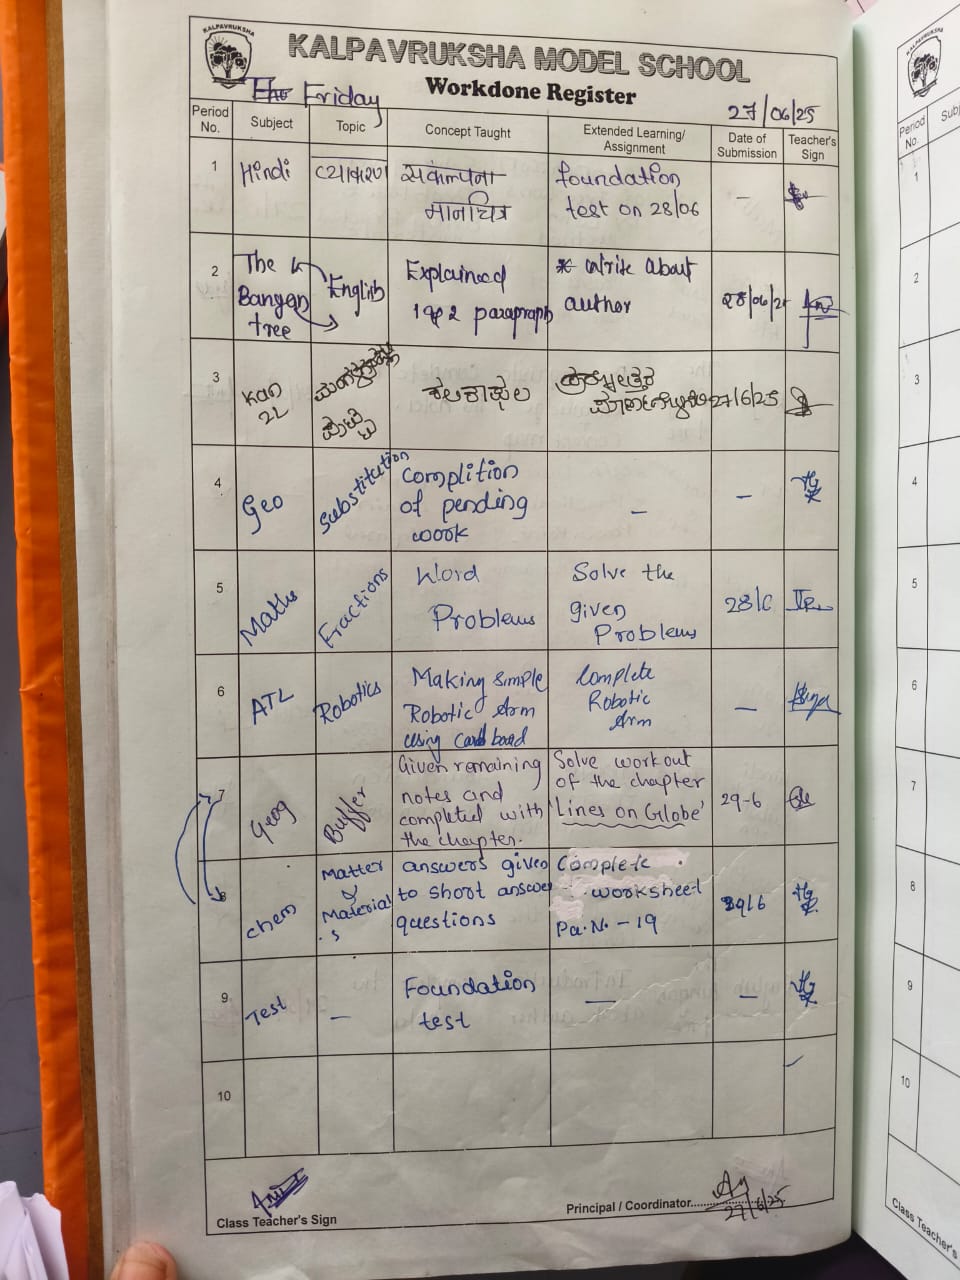 KALPAVRUKSHA
KALPAVRUKSHA MODEL SCHOOL
Workdone Register
Friday
27/06/25
Period No.
Subject
Topic
Concept Taught
Extended Learning/ Assignment
Date of Submission
Teacher's Sign
1
Hindi
संकल्पना
मानचित्र
foundation
test on 28/06
-
2
The
Bangan
tree
English
Explained
1 & 2 paragraph
* Write about
author
28/06/25
3
Kan
2L
27/6/25
4
Geo
Substitution
Complition
of pending
work
-
-
5
Maths
Fractions
Word
Problems
Solve the
given
Problems
28/6
6
ATL
Robotics
Making simple
Robotic Arm
using card board
Complete
Robotic
Arm
-
7
Geog
Buffer
Given remaining
notes and
completed with
the chapter.
Solve workout
of the chapter
'Lines on Globe'
29-6
8
chem
Matter
&
Material
s
answers given
to short answer
questions
Complete
worksheet
Pa.No. - 19
29/6
9
Test
-
Foundation
test
-
-
10
Class Teacher's Sign
Principal / Coordinator
27/6/25
KALPAVRUKSHA
Period No.
Subj
1
2
3
4
5
6
7
8
9
10
Class Teacher's